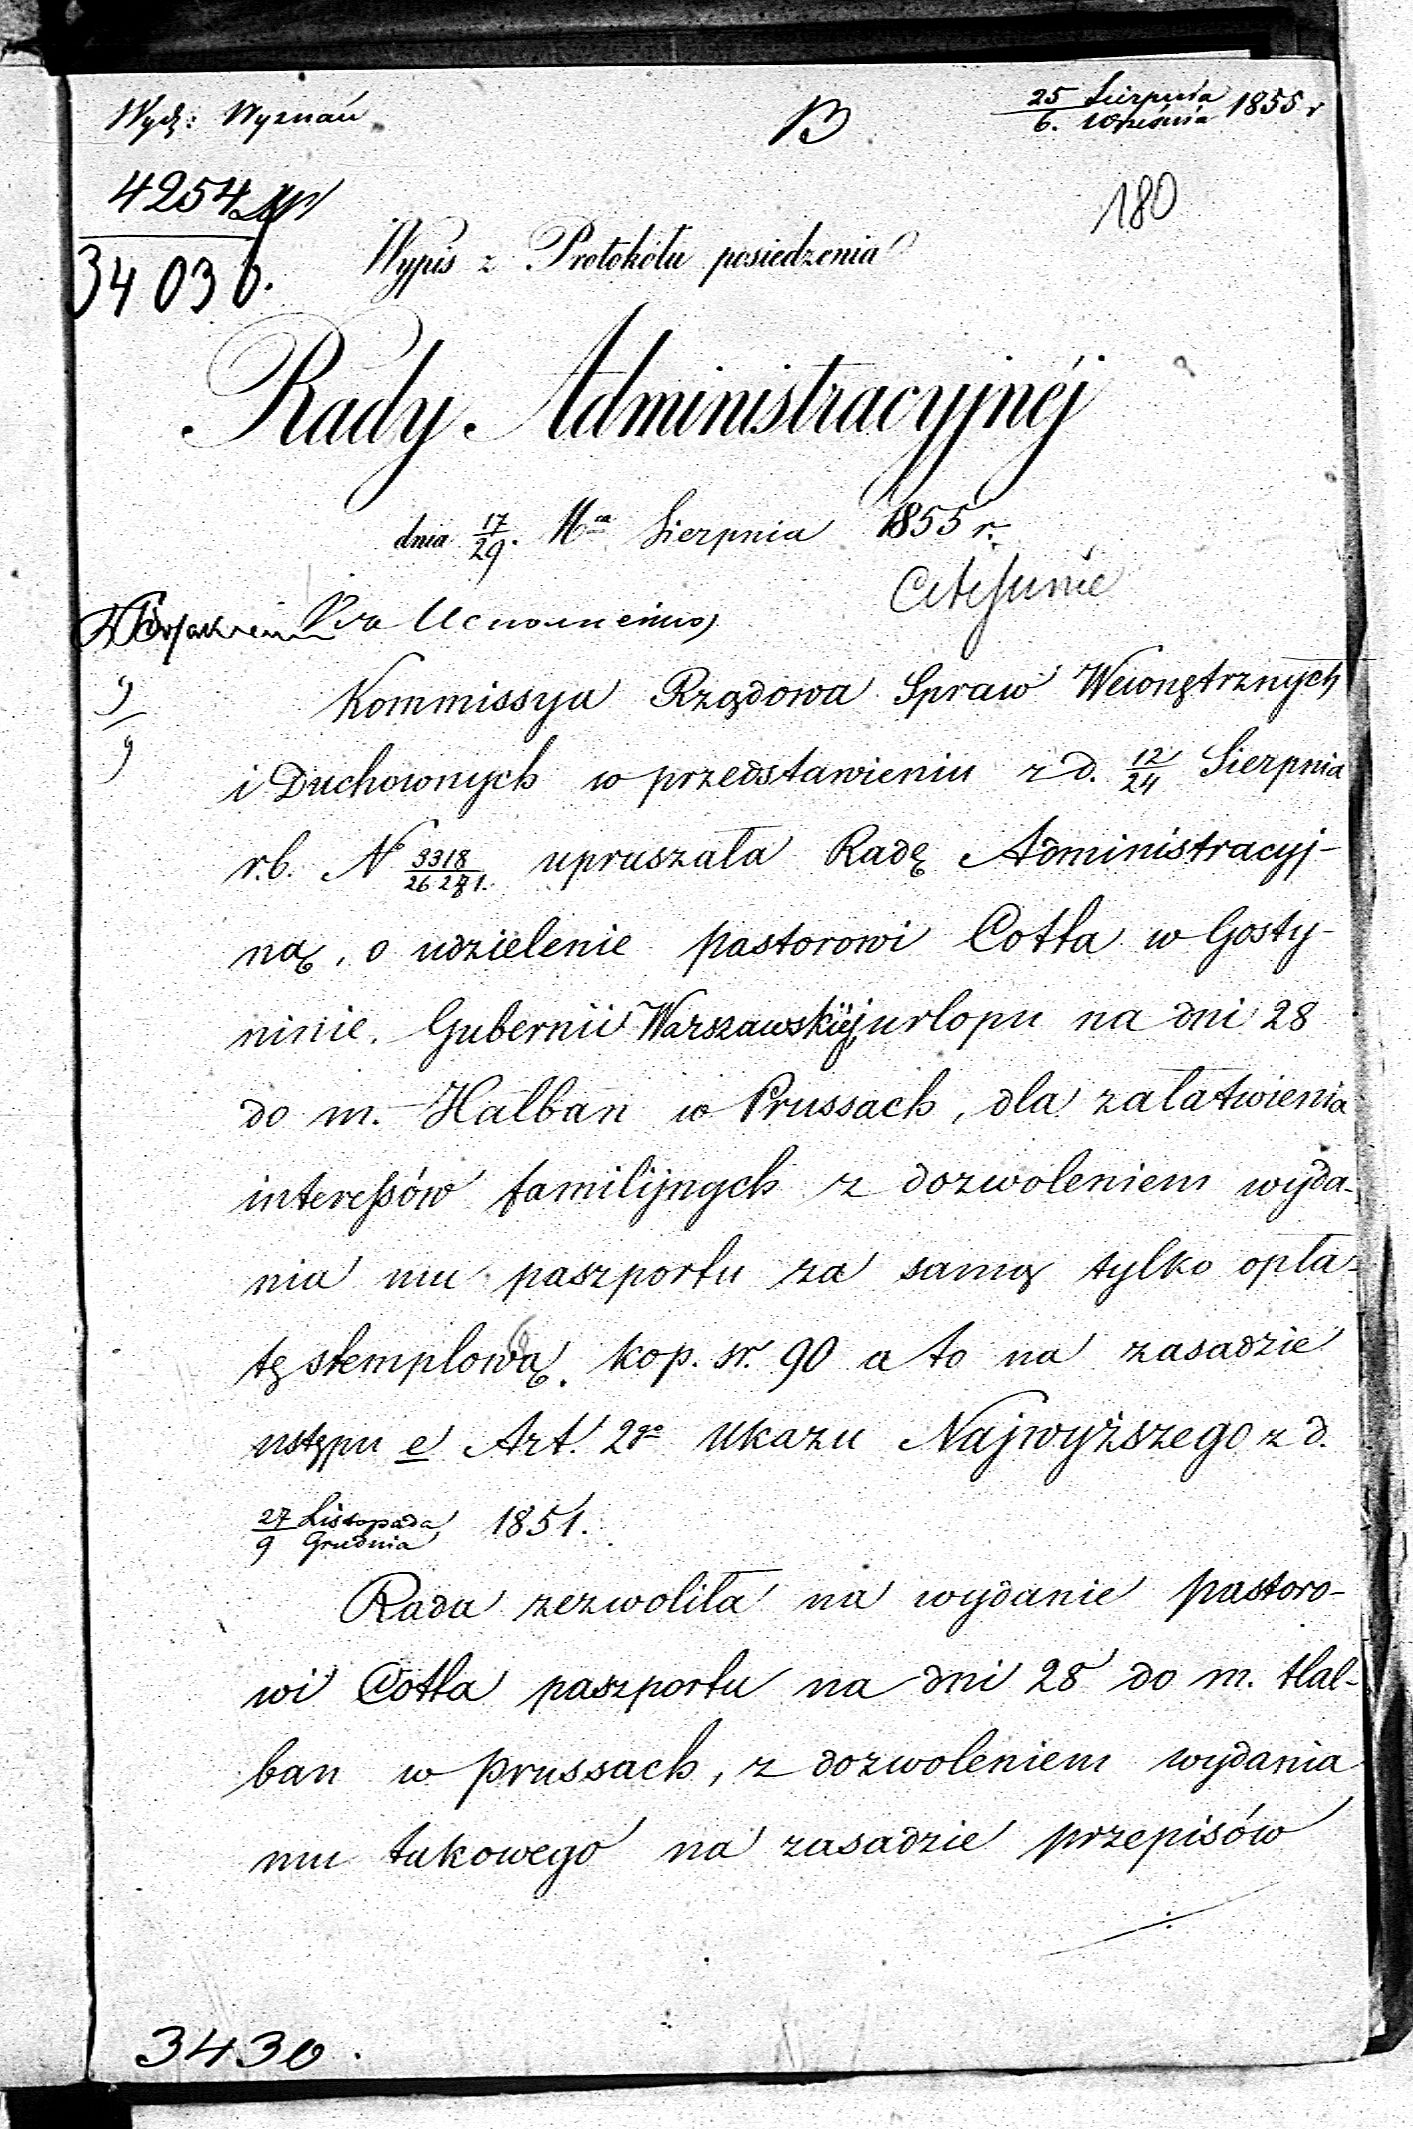 Wydz: Wyznań
B
25 Sierpnia
6. Września 1855 r
4254
34 036.
180
Wypis z Protokółu posiedzenia
Rady Administracyjnéj
dnia 17/29. Mca Sierpnia 1855 r.
Kommissya Rządowa Spraw Wewnętrznych
i Duchownych w przedstawieniu z d. 12/24 Sierpnia
r.b. No 3318/26271. upraszała Radę Administracyj-
ną, o udzielenie pastorowi Cotta w Gosty-
ninie. Gubernii Warszawskiej urlopu na dni 28
do m. Halban w Prussach, dla załatwienia
interessów familijnych z dozwoleniem wyda-
nia mu paszportu za samą tylko opła-
tę stemplową. kop. sr. 90 a to na zasadzie
ustępu e Art. 2go Ukazu Najwyższego z d.
27 Listopada
9 Grudnia 1851.
Rada zezwoliła na wydanie pastoro-
wi Cotta paszportu na dni 28 do m. Hal-
ban w prussach, z dozwoleniem wydania
mu takowego na zasadzie przepisów
3430.